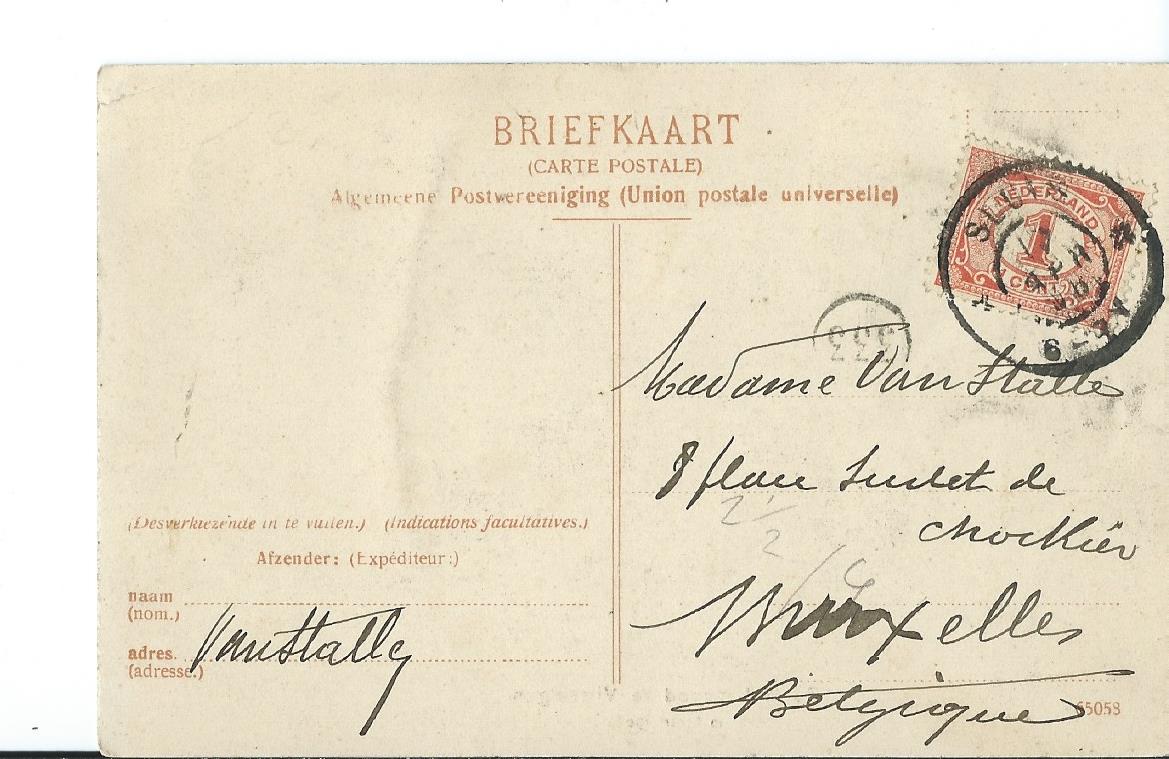 BRIEFKAART
(CARTE POSTALE)
Algemeene Postvereeniging (Union postale universelle)
NEDERLAND
1
CENT
SLUIS
Madame Van Stalle
8 place Surlet de
Chockier
Bruxelles
Belgique
(Desverkiezende in te vullen.) (Indications facultatives.)
Afzender: (Expéditeur:)
naam
(nom.)
VanStalle
adres.
(adresse.)
65058